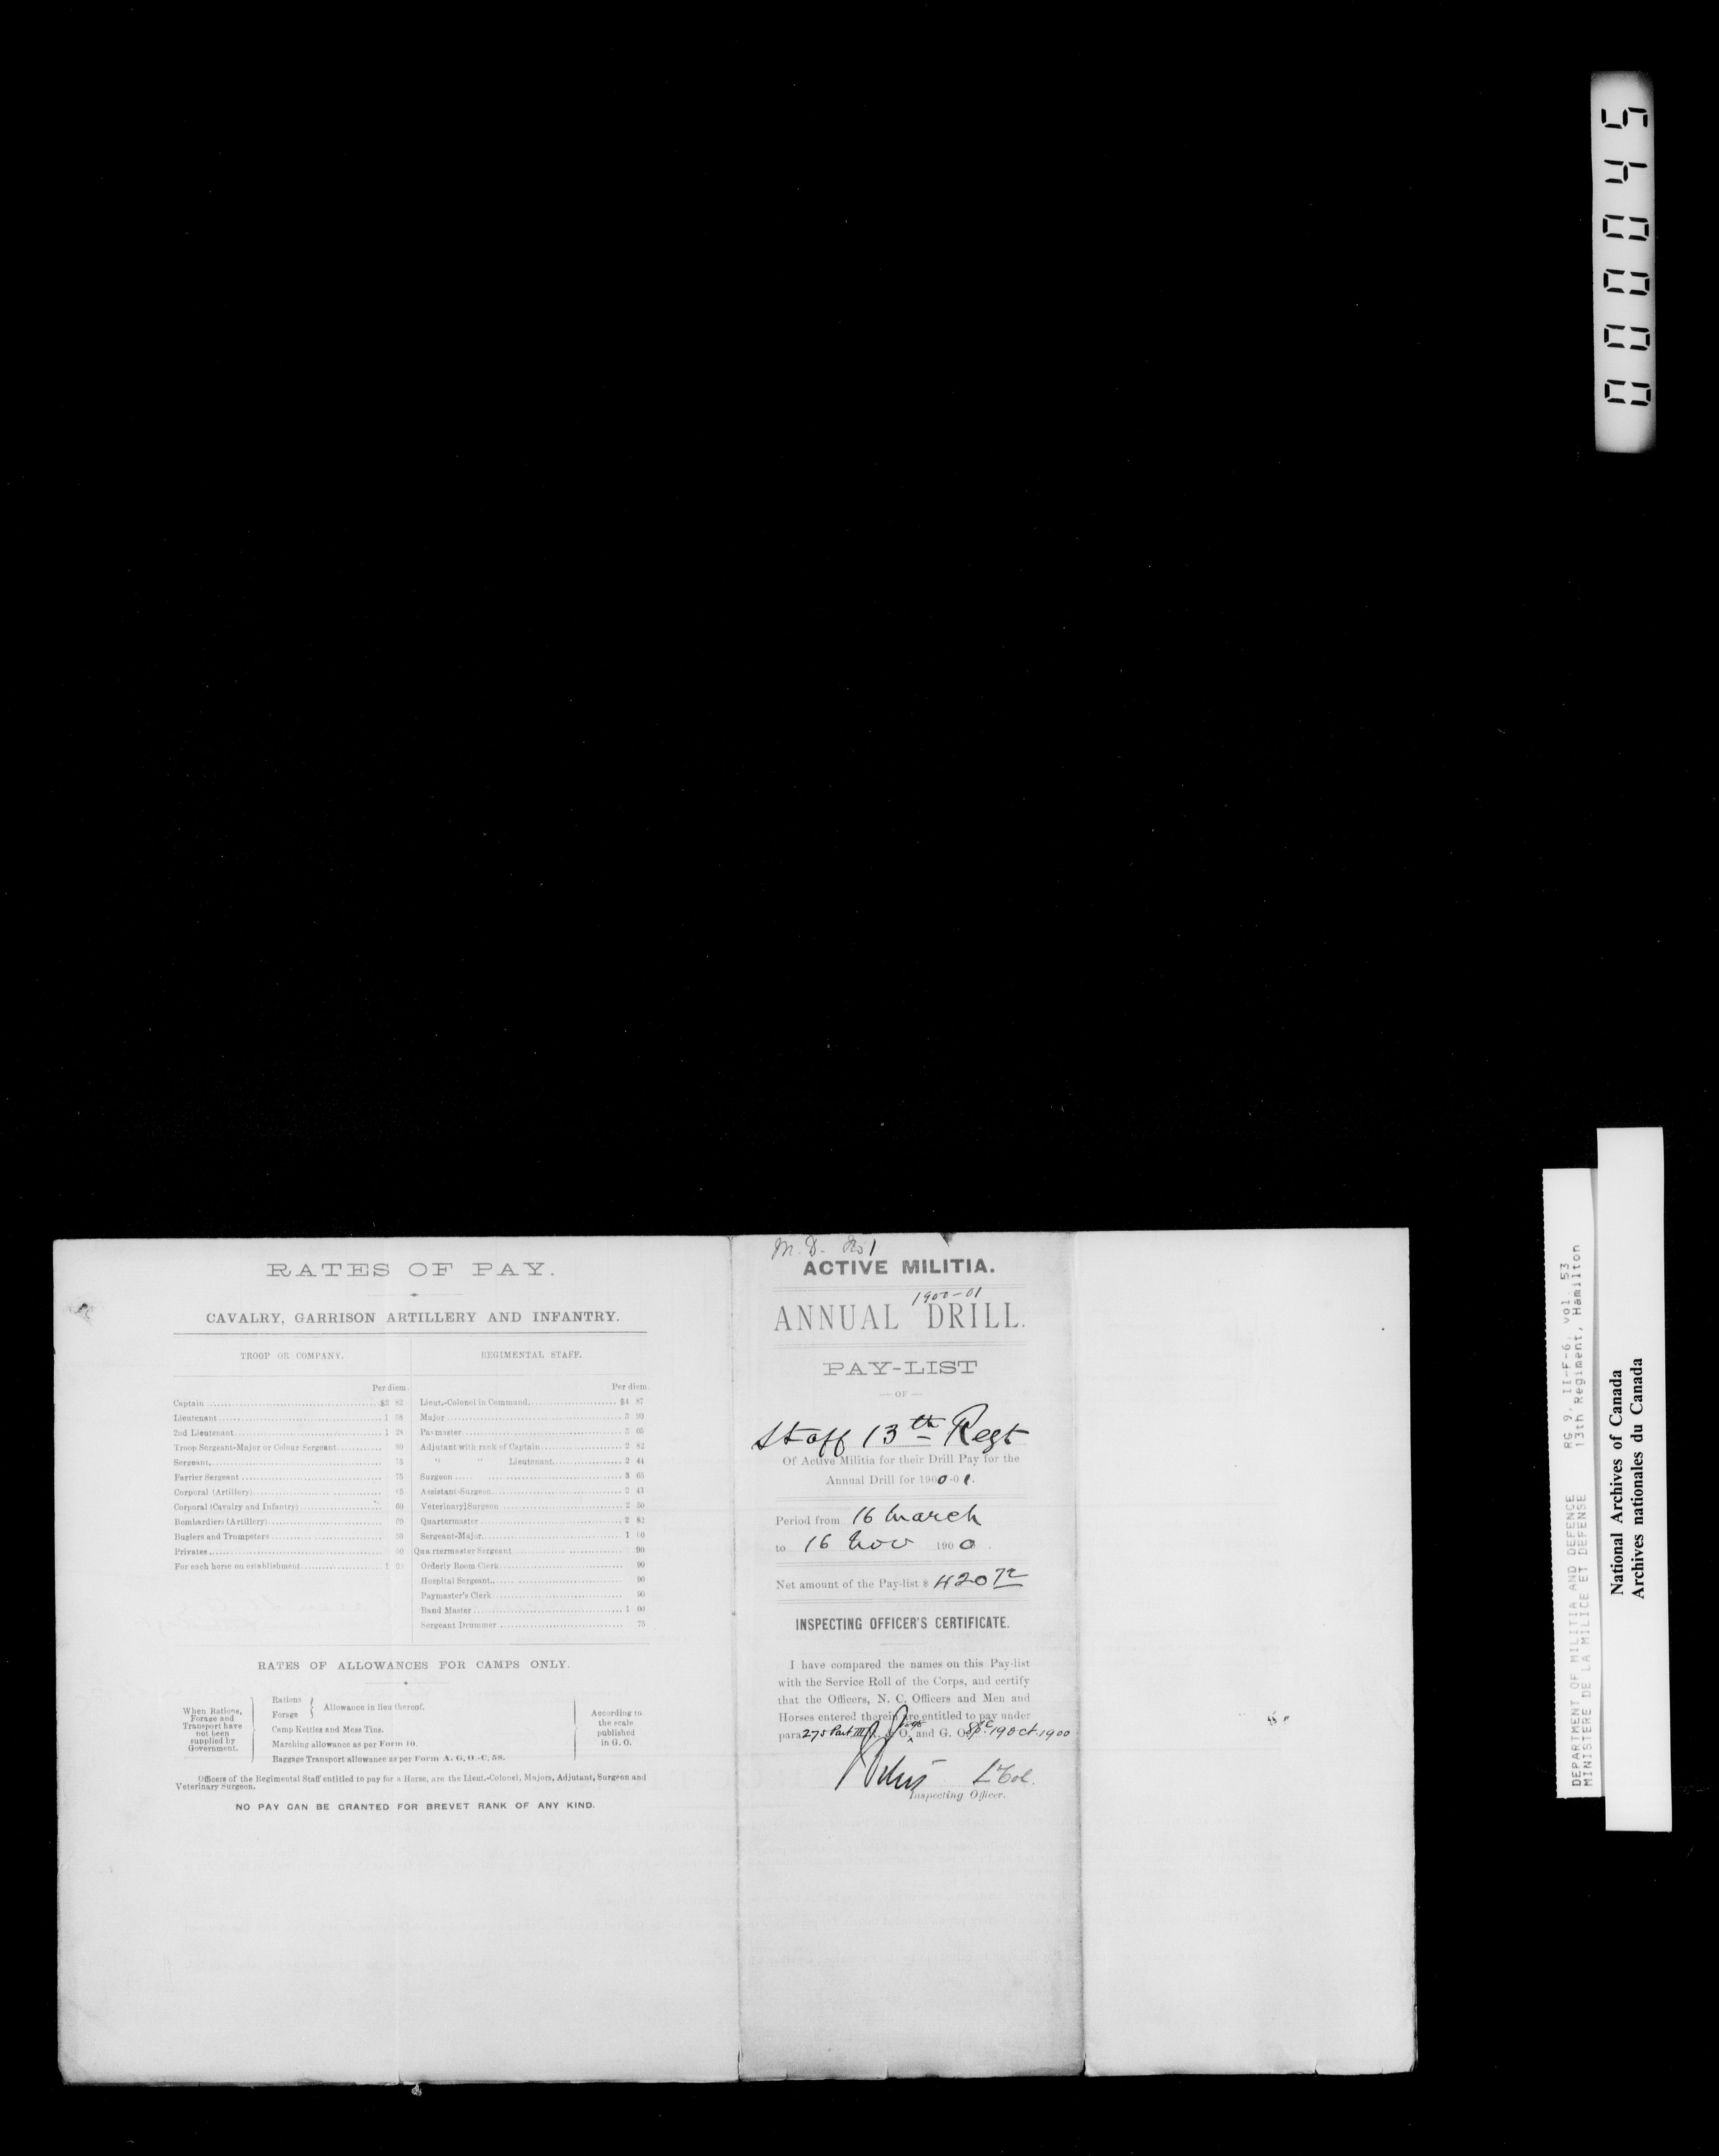 RATES OF PAY.
CAVALRY, GARRISON ARTILLERY AND INFANTRY.
TROOP OR COMPANY.
Per diem.
Captain $2 82
Lieutenant 1 58
2nd Lieutenant 1 28
Troop Sergeant-Major or Colour Sergeant 80
Sergeant, 75
Farrier Sergeant 75
Corporal (Artillery) 65
Corporal (Cavalry and Infantry) 60
Bombardiers (Artillery)
Buglers and Trumpeters 50
Privates 50
For each horse on establishment 1 00
REGIMENTAL STAFF.
Per diem.
Lieut.-Colonel in Command $4 87
Major 3 90
Paymaster 3 05
Adjutant with rank of Captain 2 82
" " Lieutenant 2 44
Surgeon 3 65
Assistant-Surgeon 2 43
Veterinary Surgeon
Quartermaster 2 82
Sergeant-Major 1 00
Quartermaster Sergeant 90
Orderly Room Clerk 90
Hospital Sergeant 90
Paymaster's Clerk 90
Band Master 1 00
Sergeant Drummer 75
RATES OF ALLOWANCES FOR CAMPS ONLY.
When Rations, Forage and Transport have not been supplied by Government.
Rations
Forage
Allowance in lieu thereof.
Camp Kettles and Mess Tins.
Marching allowance as per Form 10.
Baggage Transport allowance as per Form A. G. O.-C, 58.
According to the scale published in G. O.
Officers of the Regimental Staff entitled to pay for a Horse, are the Lieut.-Colonel, Majors, Adjutant, Surgeon and
Veterinary Surgeon.
NO PAY CAN BE GRANTED FOR BREVET RANK OF ANY KIND.
M. D. No 1
ACTIVE MILITIA.
1900-01
ANNUAL DRILL.
PAY-LIST
— OF —
Staff 13th Regt
Of Active Militia for their Drill Pay for the
Annual Drill for 1900-01.
Period from 16 March
to 16 Nov 1900
Net amount of the Pay-list $ 420 72
INSPECTING OFFICER'S CERTIFICATE.
I have compared the names on this Pay-list
with the Service Roll of the Corps, and certify
that the Officers, N. C. Officers and Men and
Horses entered therein are entitled to pay under
para 275 Part III O. and G. O. 19 Oct 1900
Lt Col.
Inspecting Officer.
000045
DEPARTMENT OF MILITIA AND DEFENCE RG 9, II-F-6, vol. 53
MINISTERE DE LA MILICE ET DEFENSE 13th Regiment, Hamilton
National Archives of Canada
Archives nationales du Canada